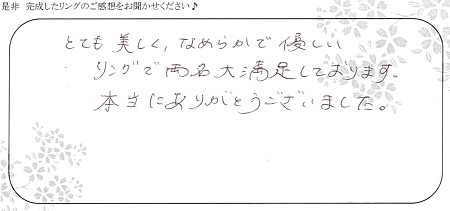 是非 完成したリングのご感想をお聞かせください♪
とても美しく、なめらかで優しい
リングで両名大満足しております。
本当にありがとうございました。